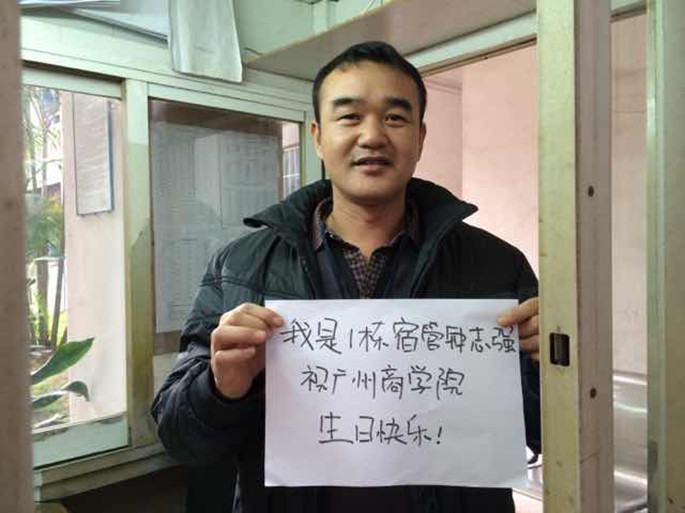 我是1栋宿管钟志强
祝广州商学院
生日快乐!